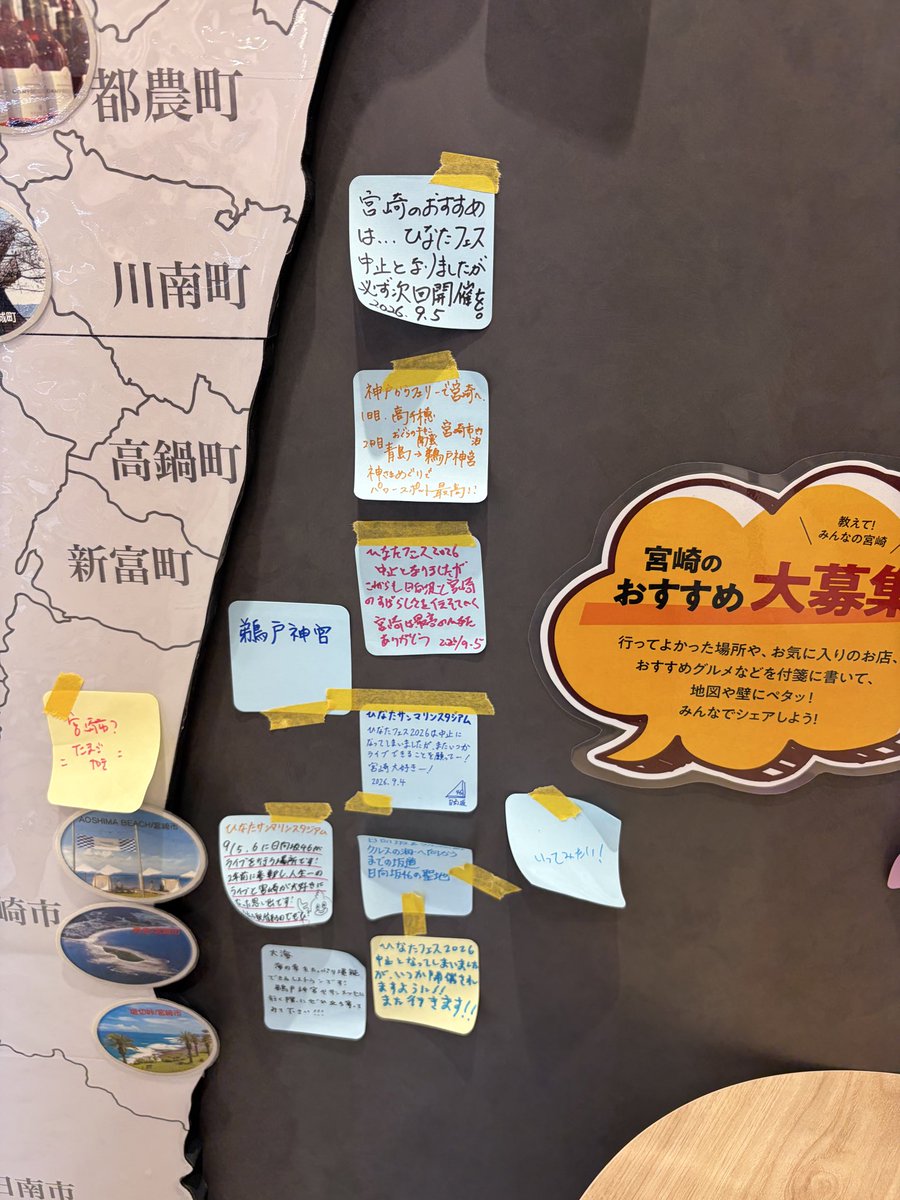 都農町
川南町
高鍋町
新富町
崎市
日南市
城町
AOSHIMA BEACH/宮崎市
堀切峠/宮崎市
宮崎のおすすめ
は…ひなたフェス
中止となりましたが
必ず次回開催を。
2026.9.5
神戸からフェリーで宮崎へ
1日目、高千穂
2日目
宮崎市内
泊
青島→鵜戸神宮
神さまめぐりで
パワースポット最高!!
ひなたフェス2026
中止となりましたが
これからも日向坂と宮崎
のすばらしさを伝えていく
宮崎は最高の
ありがとう 2026/9.5
鵜戸神宮
ひなたサンマリンスタジアム
ひなたフェス2026は中止に
なってしまいましたが、またいつか
ライブできることを願ってー!
宮崎大好きー!
2026.9.4
宮崎市?
たまご
ひなたサンマリンスタジアム
9/5.6に日向坂46が
ライブを行う場所です!
2年前に参戦し人生一の
ライブと宮崎が大好きに
なった思い出です!
クルスの海へ向かう
までの坂道
日向坂46の聖地
いってみたい!
大海
海の幸を
できるレストランです!
鵜戸神宮
みて下さい!!!
ひなたフェス2026
中止となってしまいました
が、いつか開催され
ますように!!
また行きます!!
教えて!
みんなの宮崎
宮崎の
おすすめ 大募集
行ってよかった場所や、お気に入りのお店、
おすすめグルメなどを付箋に書いて、
地図や壁にペタッ!
みんなでシェアしよう!